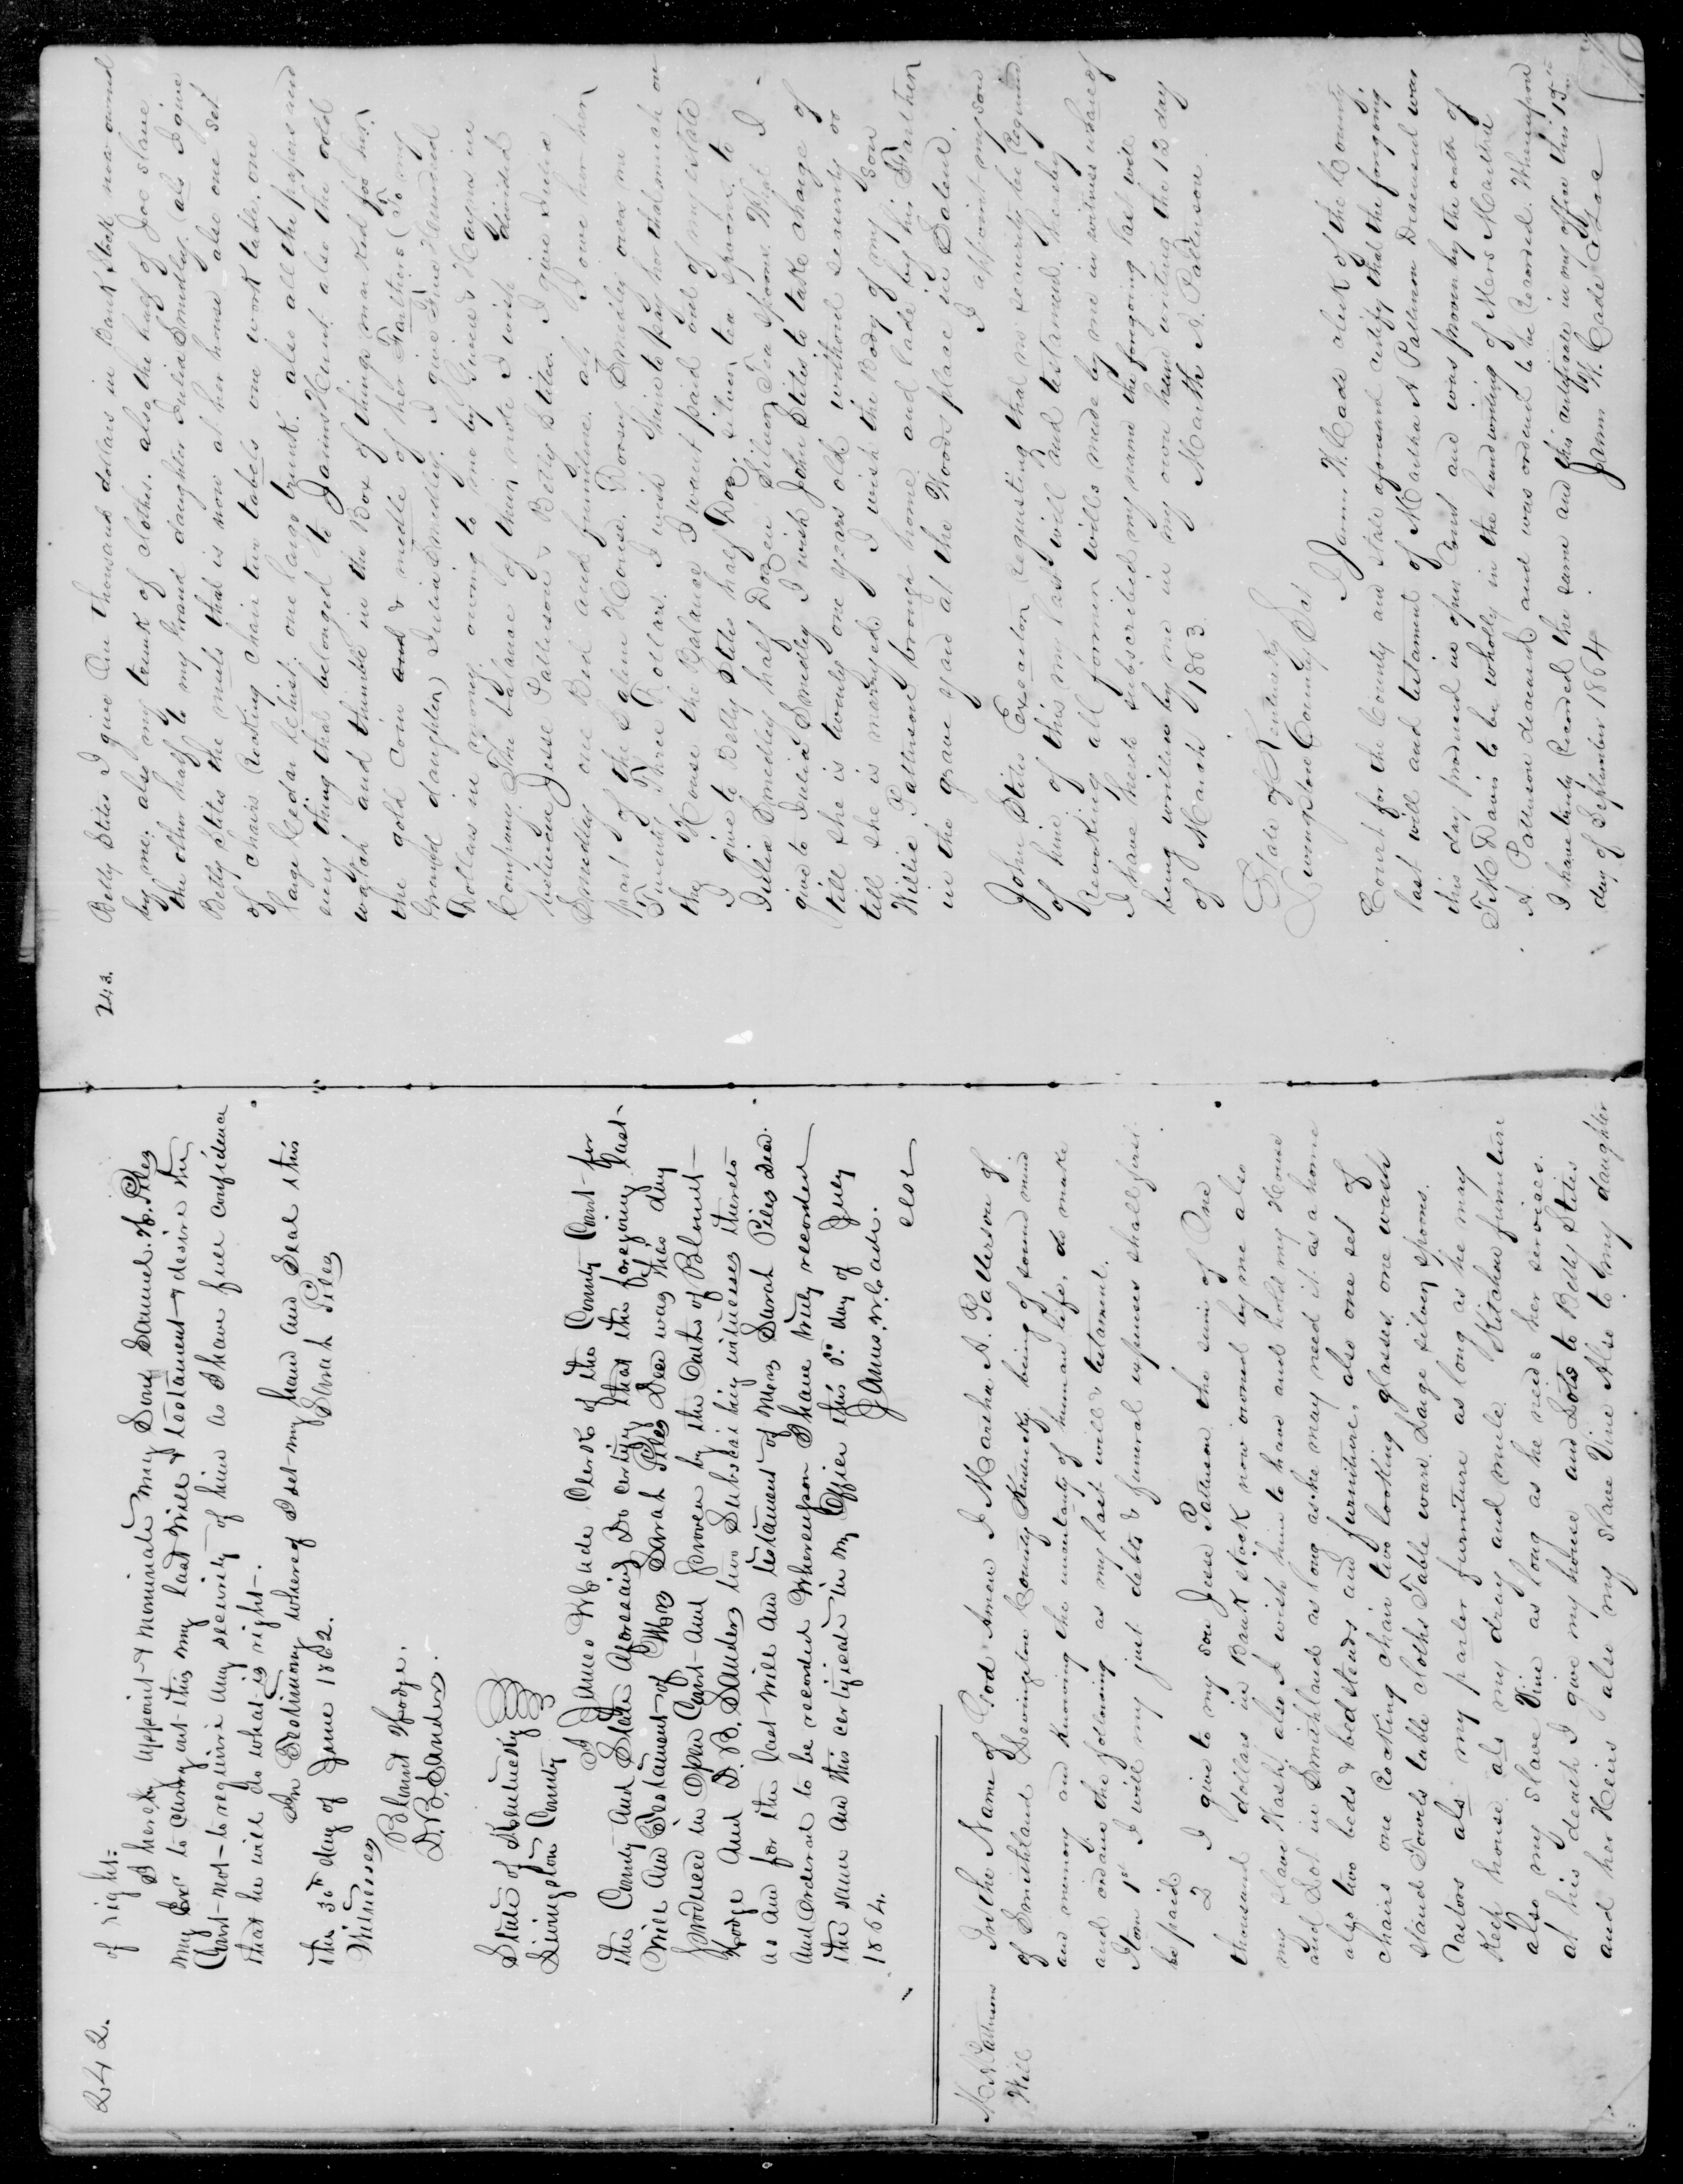 242.
of right:
I hereby appoint & nominate my Son Samuel H. Piles
my Exr to carry out this my last will & testament & desire the
Court not to require any security of him as I have full confidence
that he will do what is right.
In Testimony whereof I set my hand and Seal this
the 30th day of June 1862. Sarah Piles
Witnesses
Blount Hodge.
D. B. Sanders.
State of Kentucky
Livingston County
I James W Cade Clerk of the County Court for
the County and State Aforesaid Do certify that the foregoing last
Will and Testament of Mrs Sarah Piles Decd was this day
produced in Open Court and proven by the Oaths of Blount
Hodge and D. B. Sanders two Subscribing witnesses thereto
as and for the last will and testament of Mrs Sarah Piles Decd.
and ordered to be recorded Whereupon I have truly recorded
the same and this certificate in my Office this 5" day of July
1864. James. W. Cade.
CLCC
M A Pattersons
Will
In the Name of God Amen I Martha A. Patterson of
of Smithland Livingston County Kentucky. being of sound mind
and memory and knowing the uncertainty of human life, do make
and ordane the following as my last will & testament.
Item 1st I will my just debts & funeral expenses shall first
be paid
2 I give to my son Jesse Patterson the sum of One
thousand dollars in Bank stock now owned by me also
my slave Wash, also I wish him to have and hold my House
and Lot in Smithland as long as he may need it as a home
also two beds & bedsteads and furniture, also one set of
chairs one Rocking chair two looking glasses one wash
stand Towels table cloths Table ware. Large silver spoons.
Castors als my parler furniture as long as he may
Keep house. als my dray and mule. Kitchen furniture
also my slave Vine as long as he needs her services.
at his death I give my house and Lots to Betty Stites
and her Heirs also my slave Vine Also to my daughter
243.
Betty Stites I give One thousand dollars in Bank stock now owned
by me, also my trunk of clothes. also the half of Joe slave
the other half to my grand daughter Julia Smedley. als I give
Betty Stites the muls that is now at her house also one set
of chairs Rocking chair two tabels one work table, one
large Cedar Chist; one large trunk. also all the papers and
evry thing that belonged to James Hunt. also the old
watch and thimble in the Box of things marked for her
the gold coin and & medle of her Farthers (To my
Grand daughter) Julia Smedley. I give Five Hundred
Dollars in money owing to me by Givens Haynes in
Company The balance of their note I wish divided
between Jesse Patterson & Betty Stites. I give Julia
Smedley one Bed and furniture. als I owe her her
part of the Saline House. Dorsey Smedily owes me
Twenty Three Dollars. I wish Their to pay her that much on
the House the Balance I want paid out of my estate
I give to Betty Stites half Doz. silver tea spoons. to
Julia Smedley half Dozen Silver Tea spoons. What I
give to Julia Smedley I wish John Stites to take charge of
till she is twenty one years old without security or
till she is marryed I wish the Body of my son
Willie Patterson brough home and lade by his Farther
in the grave yard at the Woods place in Salem.
I appoint my son
John Stites Executor requesting that no security be Required
of him of this my last will and testament, hereby
Revoking all former wills made by me in witness whare of
I have here subscribed my name the forgoing last will
being written by me in my own hand writing the 12 day
of March 1863. Martha A. Patterson.
State of Kentucky
Livingston County Sct
I James W. Cade clerk of the County
Court for the County and State aforesaid certify that the forgoing
last will and testament of Martha A Patterson Deceased was
this day produced in open Court and was proven by the oath of
T. K. Davis to be wholly in the handwriting of Mers Martha
A. Patterson deceased and was ordered to be Recorded. Whereupon
I have truly Recorded the same and this certificate in my office this 15th
day of September 1864. James W. Cade